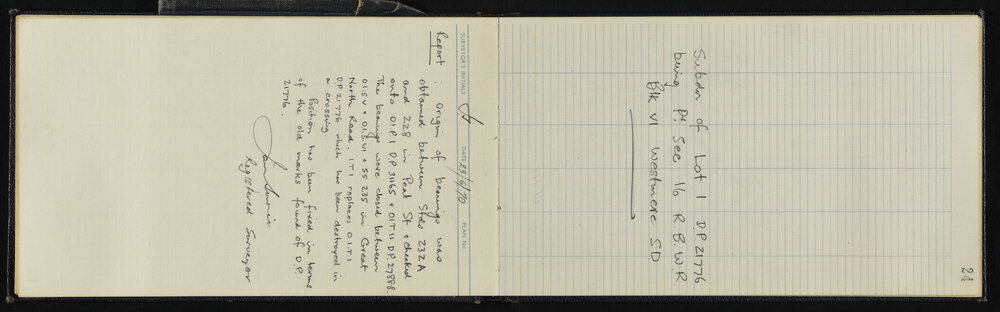 24
Subdn of Lot 1 D.P. 21776
being Pt Sec 16 R B W R
Blk VI Westmere S D
SURVEYOR'S INITIALS DATE 23/6/70 PLAN No.
Report : Origin of bearings was
obtained between Stds 232A
and 228 in Peat St & checked
onto O.I.P.1 D.P. 31165 & O.I.T.11 D.P. 27888.
The bearings were closed between
O.I.S.V & O.I.S.VI & SS 235 in Great
North Road. I.T.1 replaces O.I.T.1
D.P. 21776 which has been destroyed in
a crossing.
Position has been fixed in terms
of the old marks found of D.P.
21776.
Registered Surveyor